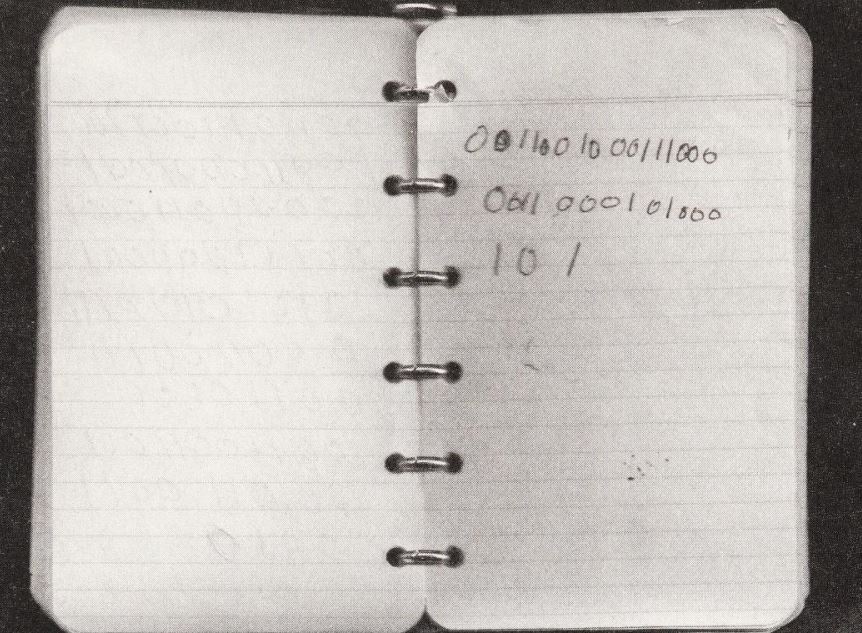 0011001000111000
0011000101000
101